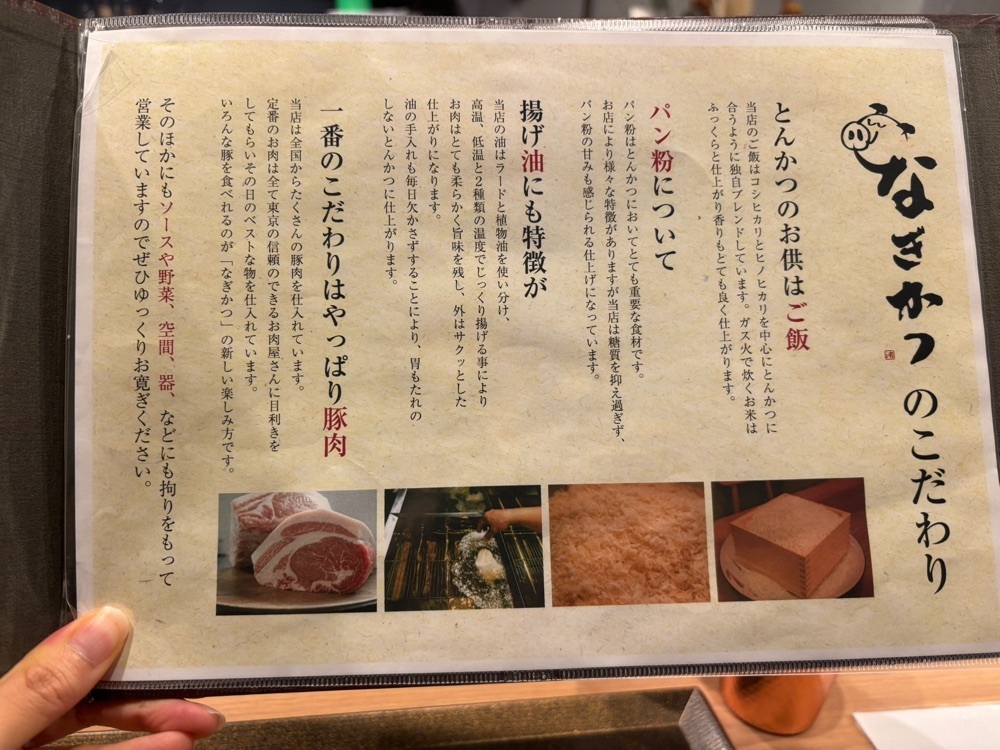 なぎかつのこだわり
とんかつのお供はご飯
当店のご飯はコシヒカリとヒノヒカリを中心にとんかつに
合うように独自ブレンドしています。ガス火で炊くお米は
ふっくらと仕上がり香りもとても良く仕上がります。
パン粉について
パン粉はとんかつにおいてとても重要な食材です。
お店により様々な特徴がありますが当店は糖質を抑え過ぎず、
パン粉の甘みも感じられる仕上げになっています。
揚げ油にも特徴が
当店の油はラードと植物油を使い分け、
高温、低温と2種類の温度でじっくり揚げる事により
お肉はとても柔らかく旨味を残し、外はサクッとした
仕上がりになります。
油の手入れも毎日欠かさずすることにより、胃もたれの
しないとんかつに仕上がります。
一番のこだわりはやっぱり豚肉
当店は全国からたくさんの豚肉を仕入れています。
定番のお肉は全て東京の信頼のできるお肉屋さんに目利きを
してもらいその日のベストな物を仕入れています。
いろんな豚を食べれるのが「なぎかつ」の新しい楽しみ方です。
そのほかにもソースや野菜、空間、器、などにも拘りをもって
営業していますのでぜひゆっくりお寛ぎください。